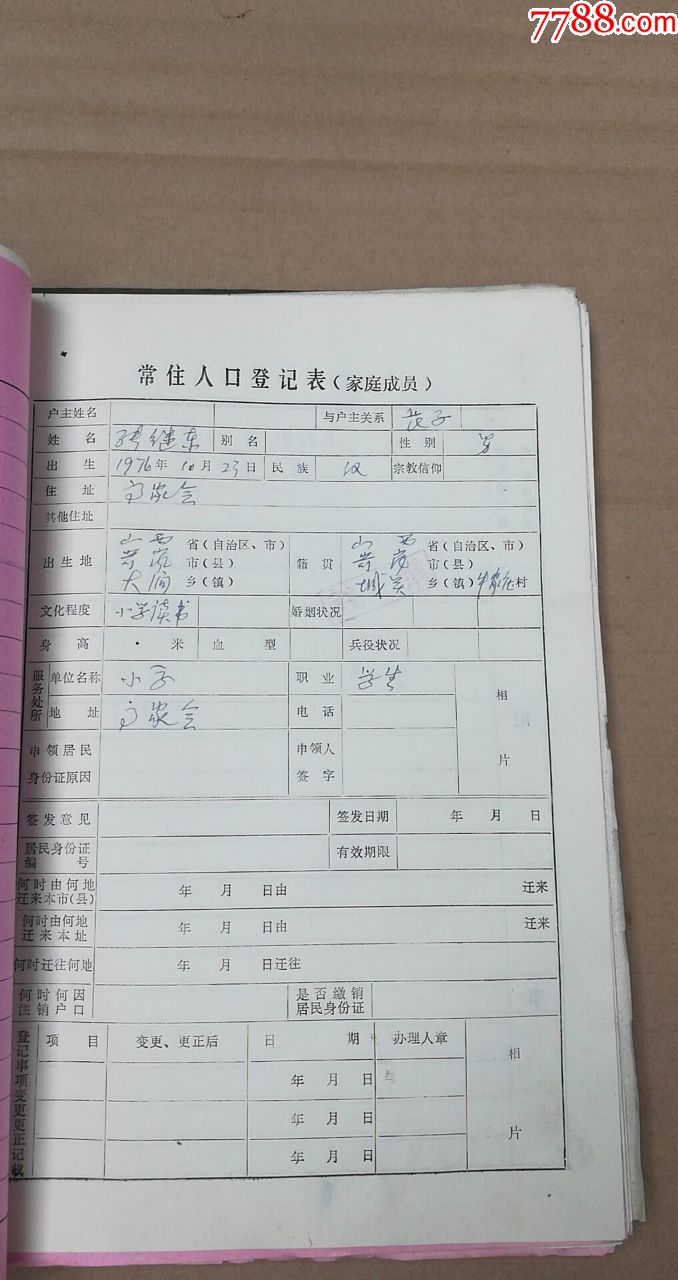 7788.com
常住人口登记表（家庭成员）
户主姓名 与户主关系 子
姓名 张继东 别名 性别 男
出生 1976年10月23日 民族 汉 宗教信仰
住址 高家会
其他住址
出生地 山西 省（自治区、市） 籍贯 山西 省（自治区、市）
岢岚 市（县） 岢岚 市（县）
大涧 乡（镇） 城关 乡（镇） 村
文化程度 小学读书 婚姻状况
身高 · 米 血型 兵役状况
服务处所 单位名称 小学 职业 学生 相片
地址 高家会 电话
申领居民身份证原因 申领人签字
签发意见 签发日期 年 月 日
居民身份证编号 有效期限
何时由何地迁来本市(县) 年 月 日由 迁来
何时由何地迁来本址 年 月 日由 迁来
何时迁往何地 年 月 日迁往
何时何因注销户口 是否缴销居民身份证
登记事项变更更正记载 项目 变更、更正后 日期 办理人章 相片
年 月 日
年 月 日
年 月 日